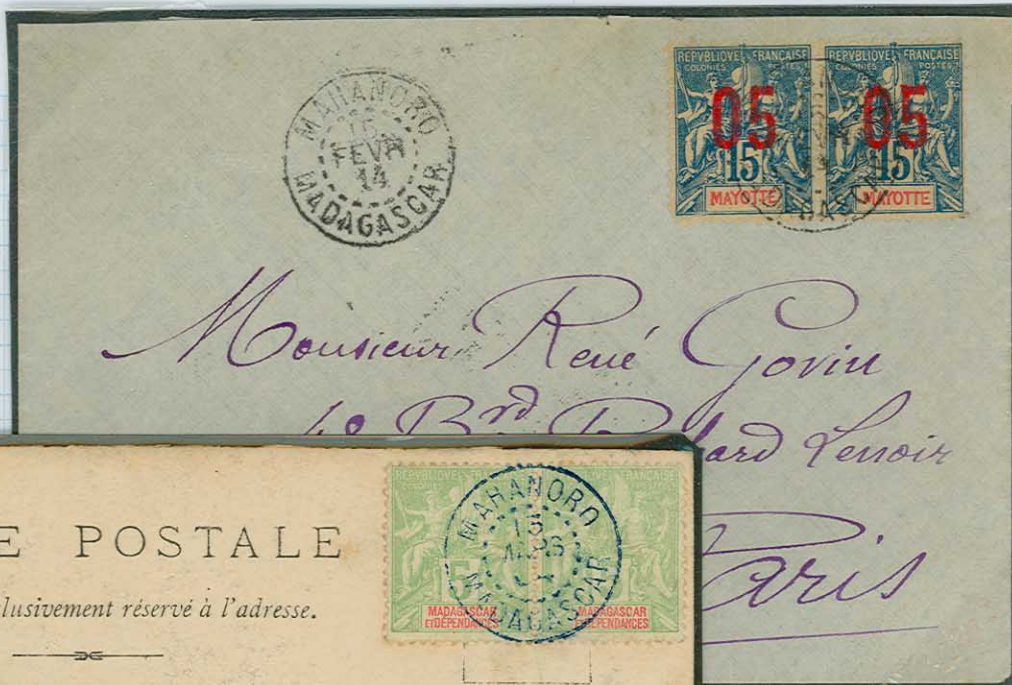 MAHANORO
16
FEVR
14
MADAGASCAR
REPVBLIQVE FRANÇAISE
COLONIES POSTES
05
15
MAYOTTE
REPVBLIQVE FRANÇAISE
COLONIES POSTES
05
15
MAYOTTE
Monsieur René Govin
48 Brd
ard Lenoir
Paris
E POSTALE
clusivement réservé à l'adresse.
MAHANORO
MADAGASCAR
MADAGASCAR
ET DÉPENDANCES
MADAGASCAR
ET DÉPENDANCES